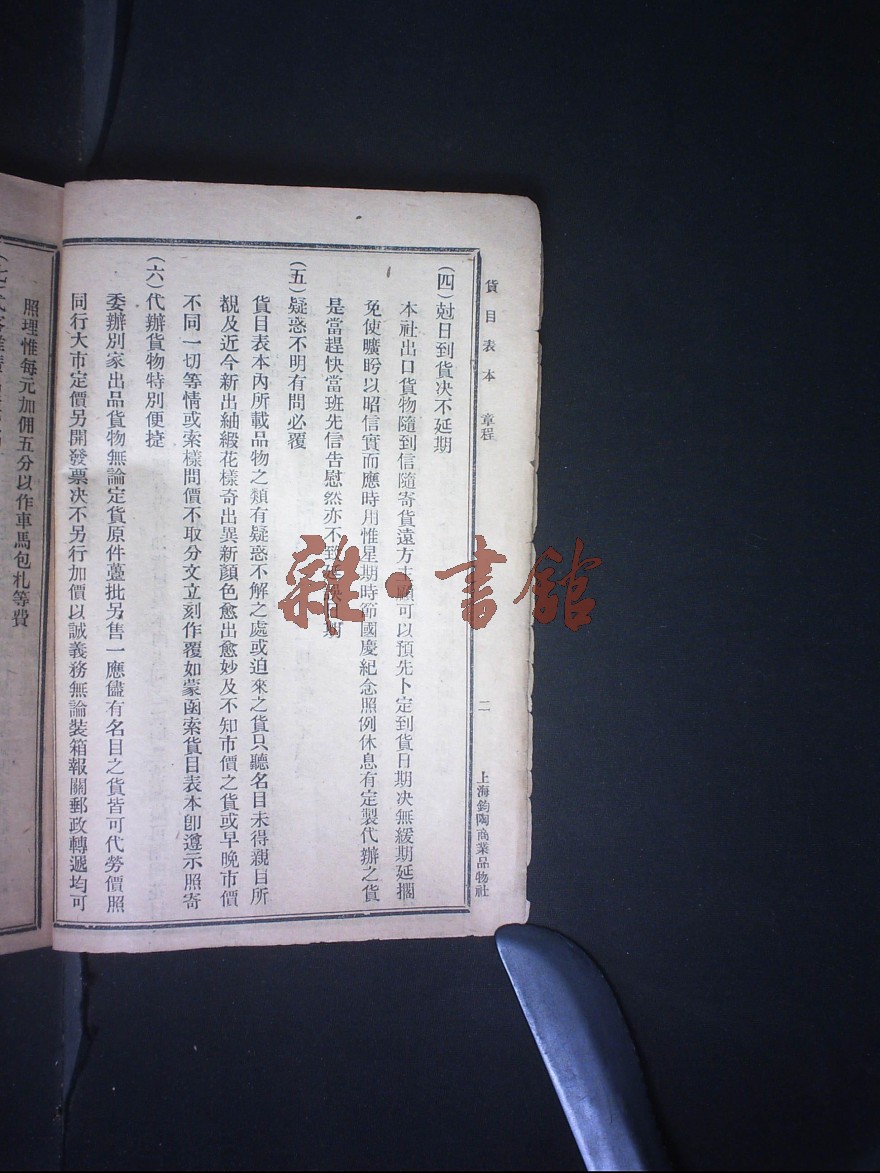 貨目表本 章程 二 上海鈞陶商業品物社
(四)尅日到貨决不延期
本社出口貨物隨到信隨寄貨遠方 顧可以預先卜定到貨日期决無緩期延擱
免使曠盻以昭信實而應時用惟星期時節國慶紀念照例休息有定製代辦之貨
是當趕快當班先信告慰然亦不致 期
(五)疑惑不明有問必覆
貨目表本內所載品物之類有疑惑不解之處或迫來之貨只聽名目未得親目所
覩及近今新出紬緞花樣奇出異新顏色愈出愈妙及不知市價之貨或早晚市價
不同一切等情或索樣問價不取分文立刻作覆如蒙函索貨目表本卽遵示照寄
(六)代辦貨物特別便捷
委辦別家出品貨物無論定貨原件躉批另售一應儘有名目之貨皆可代勞價照
同行大市定價另開發票决不另行加價以誠義務無論裝箱報關郵政轉遞均可
照理惟每元加佣五分以作車馬包札等費
雜·書館